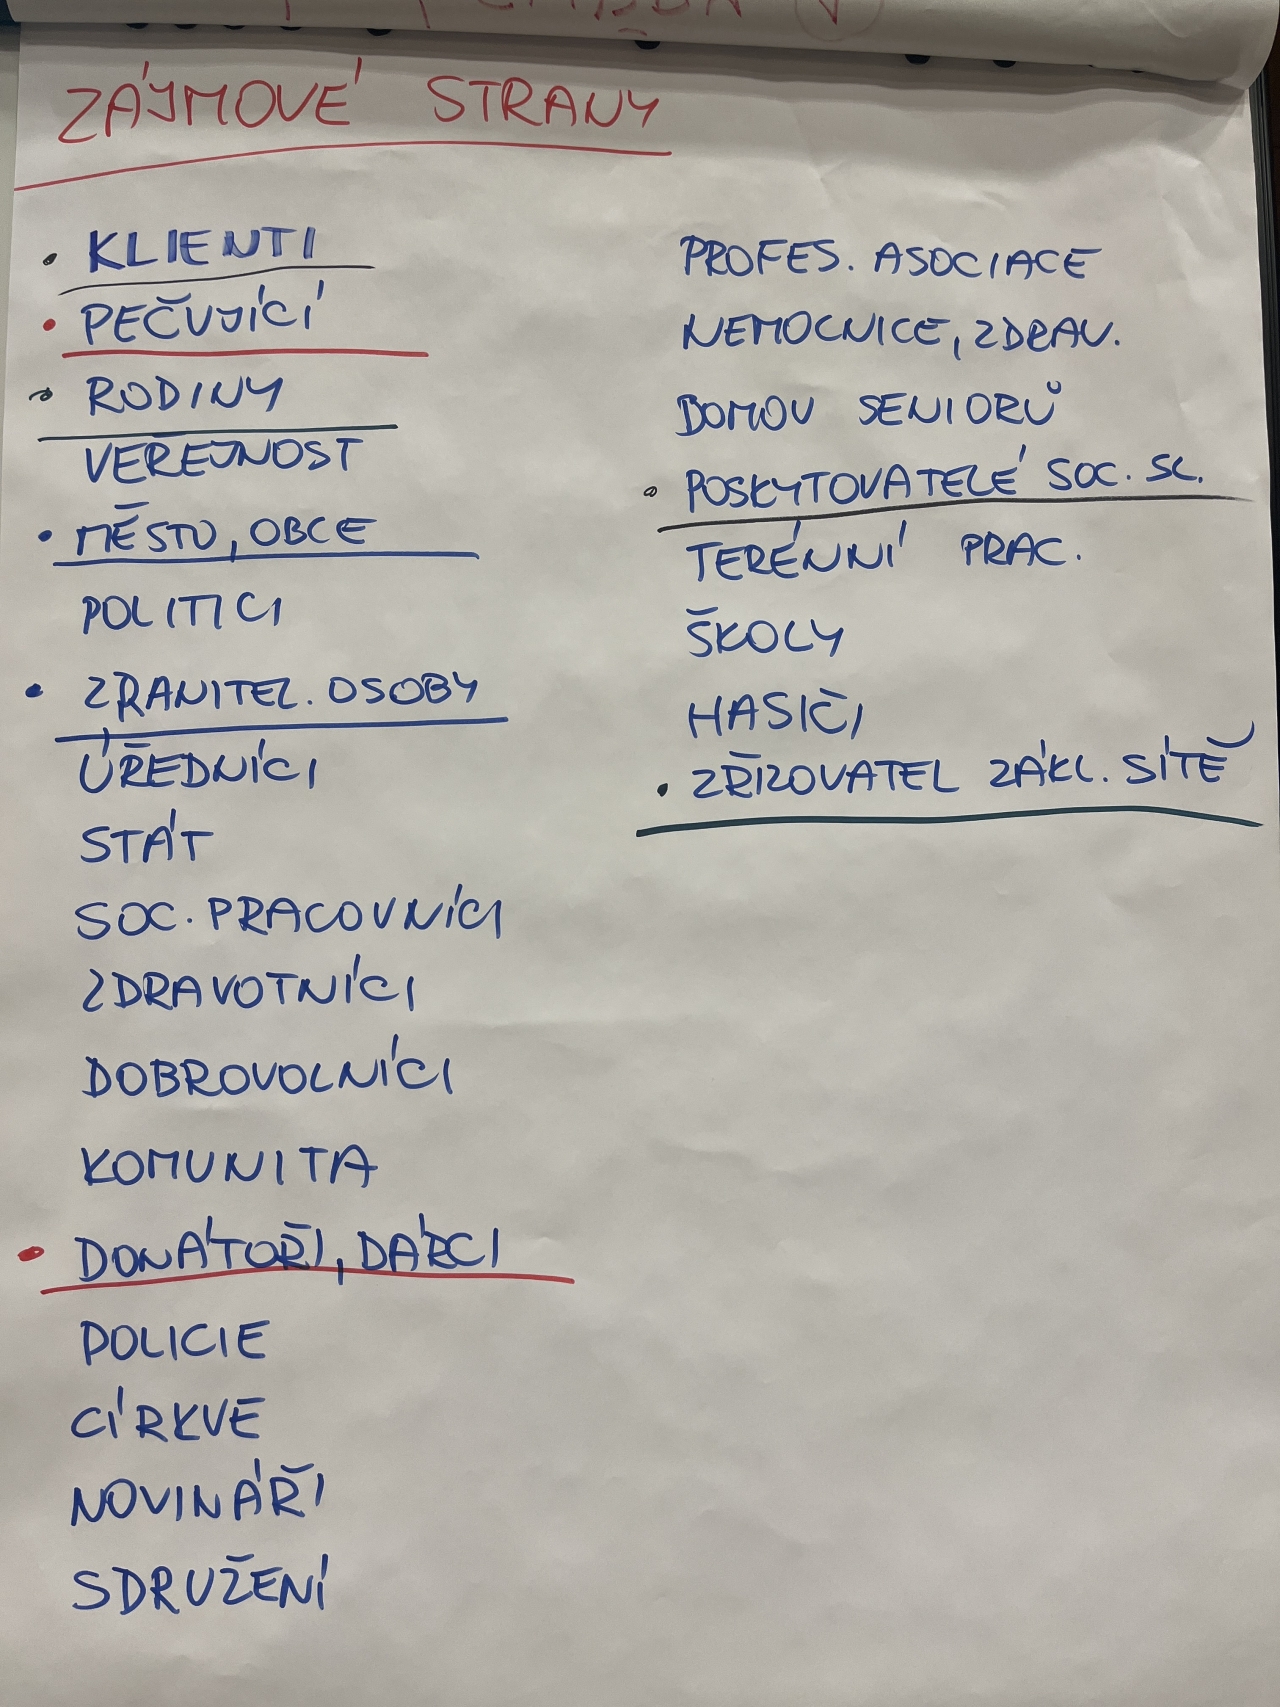 ZÁJMOVÉ STRANY
• KLIENTI
• PEČUJÍCÍ
• RODINY
VEŘEJNOST
• MĚSTO, OBCE
POLITICI
• ZRANITEL. OSOBY
ÚŘEDNÍCI
STÁT
SOC. PRACOVNÍCI
ZDRAVOTNÍCI
DOBROVOLNÍCI
KOMUNITA
• DONÁTOŘI, DÁRCI
POLICIE
CÍRKVE
NOVINÁŘI
SDRUŽENÍ
PROFES. ASOCIACE
NEMOCNICE, ZDRAV.
DOMOV SENIORŮ
• POSKYTOVATELÉ SOC. SL.
TERÉNNÍ PRAC.
ŠKOLY
HASIČI
• ZŘIZOVATEL ZÁKL. SÍTĚ